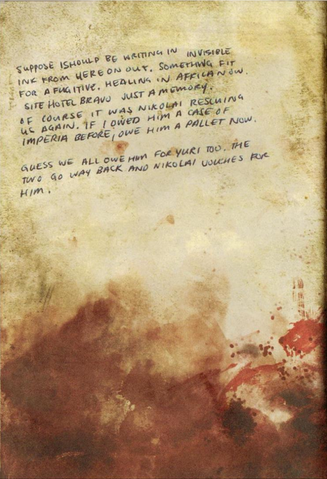 SUPPOSE I SHOULD BE WRITING IN INVISIBLE
INK FROM HERE ON OUT. SOMETHING FIT
FOR A FUGITIVE. HEALING IN AFRICA NOW.
SITE HOTEL BRAVO JUST A MEMORY.
OF COURSE IT WAS NIKOLAI RESCUING
US AGAIN. IF I OWED HIM A CASE OF
IMPERIA BEFORE, OWE HIM A PALLET NOW.
GUESS WE ALL OWE HIM FOR YURI TOO. THE
TWO GO WAY BACK AND NIKOLAI VOUCHES FOR
HIM.